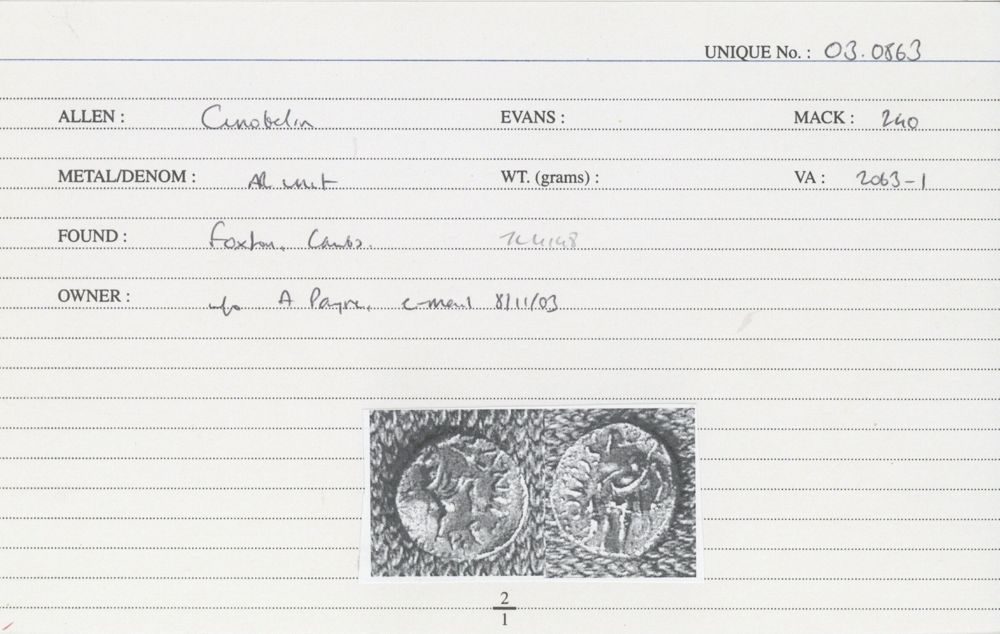 UNIQUE No. : 03.0863
ALLEN : Cunobelin EVANS : MACK : 240
METAL/DENOM : AR unit WT. (grams) : VA : 2063-1
FOUND : Foxton, Cambs.
OWNER : A Payne, e-mail 8/11/03
2
1